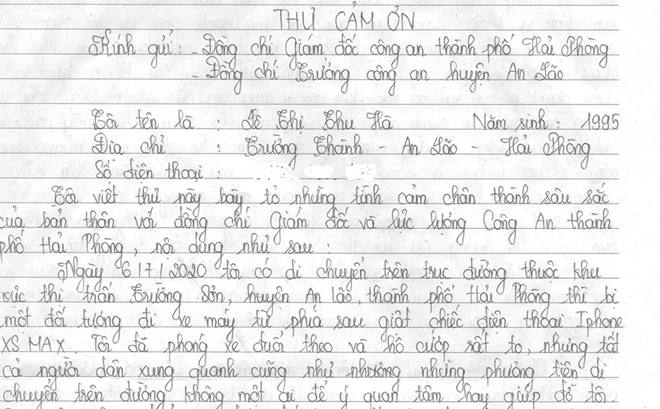 THƯ CẢM ƠN
Kính gửi: - Đồng chí Giám đốc công an thành phố Hải Phòng
- Đồng chí Trưởng công an huyện An Lão
Tôi tên là : Lê Thị Thu Hà Năm sinh: 1995
Địa chỉ : Trường Thành - An Lão - Hải Phòng
Số điện thoại :
Tôi viết thư này bày tỏ những tình cảm chân thành sâu sắc
của bản thân với đồng chí Giám đốc và lực lượng Công An thành
phố Hải Phòng, nội dung như sau:
Ngày 6/7/2020 tôi có di chuyển trên trục đường thuộc khu
vực thị trấn Trường Sơn, huyện An Lão, thành phố Hải Phòng thì bị
một đối tượng đi xe máy từ phía sau giật chiếc điện thoại Iphone
XS MAX. Tôi đã phóng xe đuổi theo và hô cướp rất to, nhưng tất
cả người dân xung quanh cũng như những phương tiện di
chuyển trên đường không một ai để ý quan tâm hay giúp đỡ tôi.